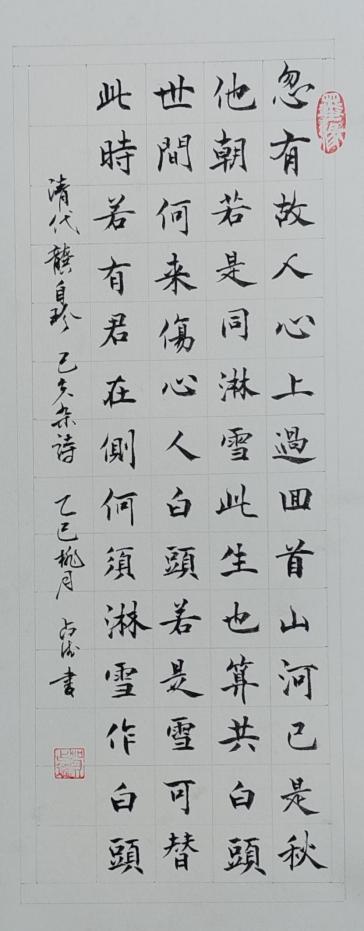 忽有故人心上過回首山河已是秋
他朝若是同淋雪此生也算共白頭
世間何来傷心人白頭若是雪可替
此時若有君在側何須淋雪作白頭
清代龔自珍己亥杂詩 乙巳桃月 書